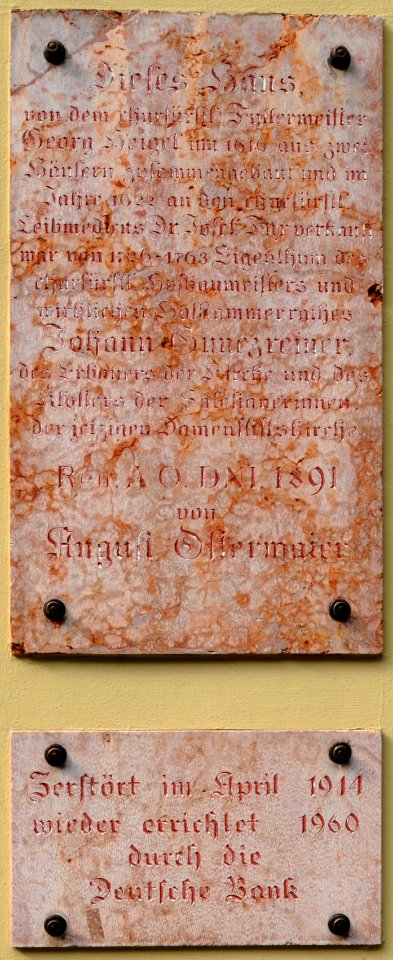 Dieses Haus,
von dem churfürstl. Futtermeister
Georg Heigel um 1616 aus zwei
Häusern zusammengebaut und im
Jahre 1622 an den churfürstl.
Leibmedicus Dr. Josef verkauft
war von 1726-1763 Eigenthum des
churfürstl. Hofbaumeisters und
wirklichen Hofkammerrathes
Johann Gunezreiner
des Erbauers der Kirche und des
Klosters der Salesianerinnen
der jetzigen Damenstiftskirche
Ren. A O. DNI. 1891
von
August Ostermaier
Zerstört im April 1944
wieder errichtet 1960
durch die
Deutsche Bank